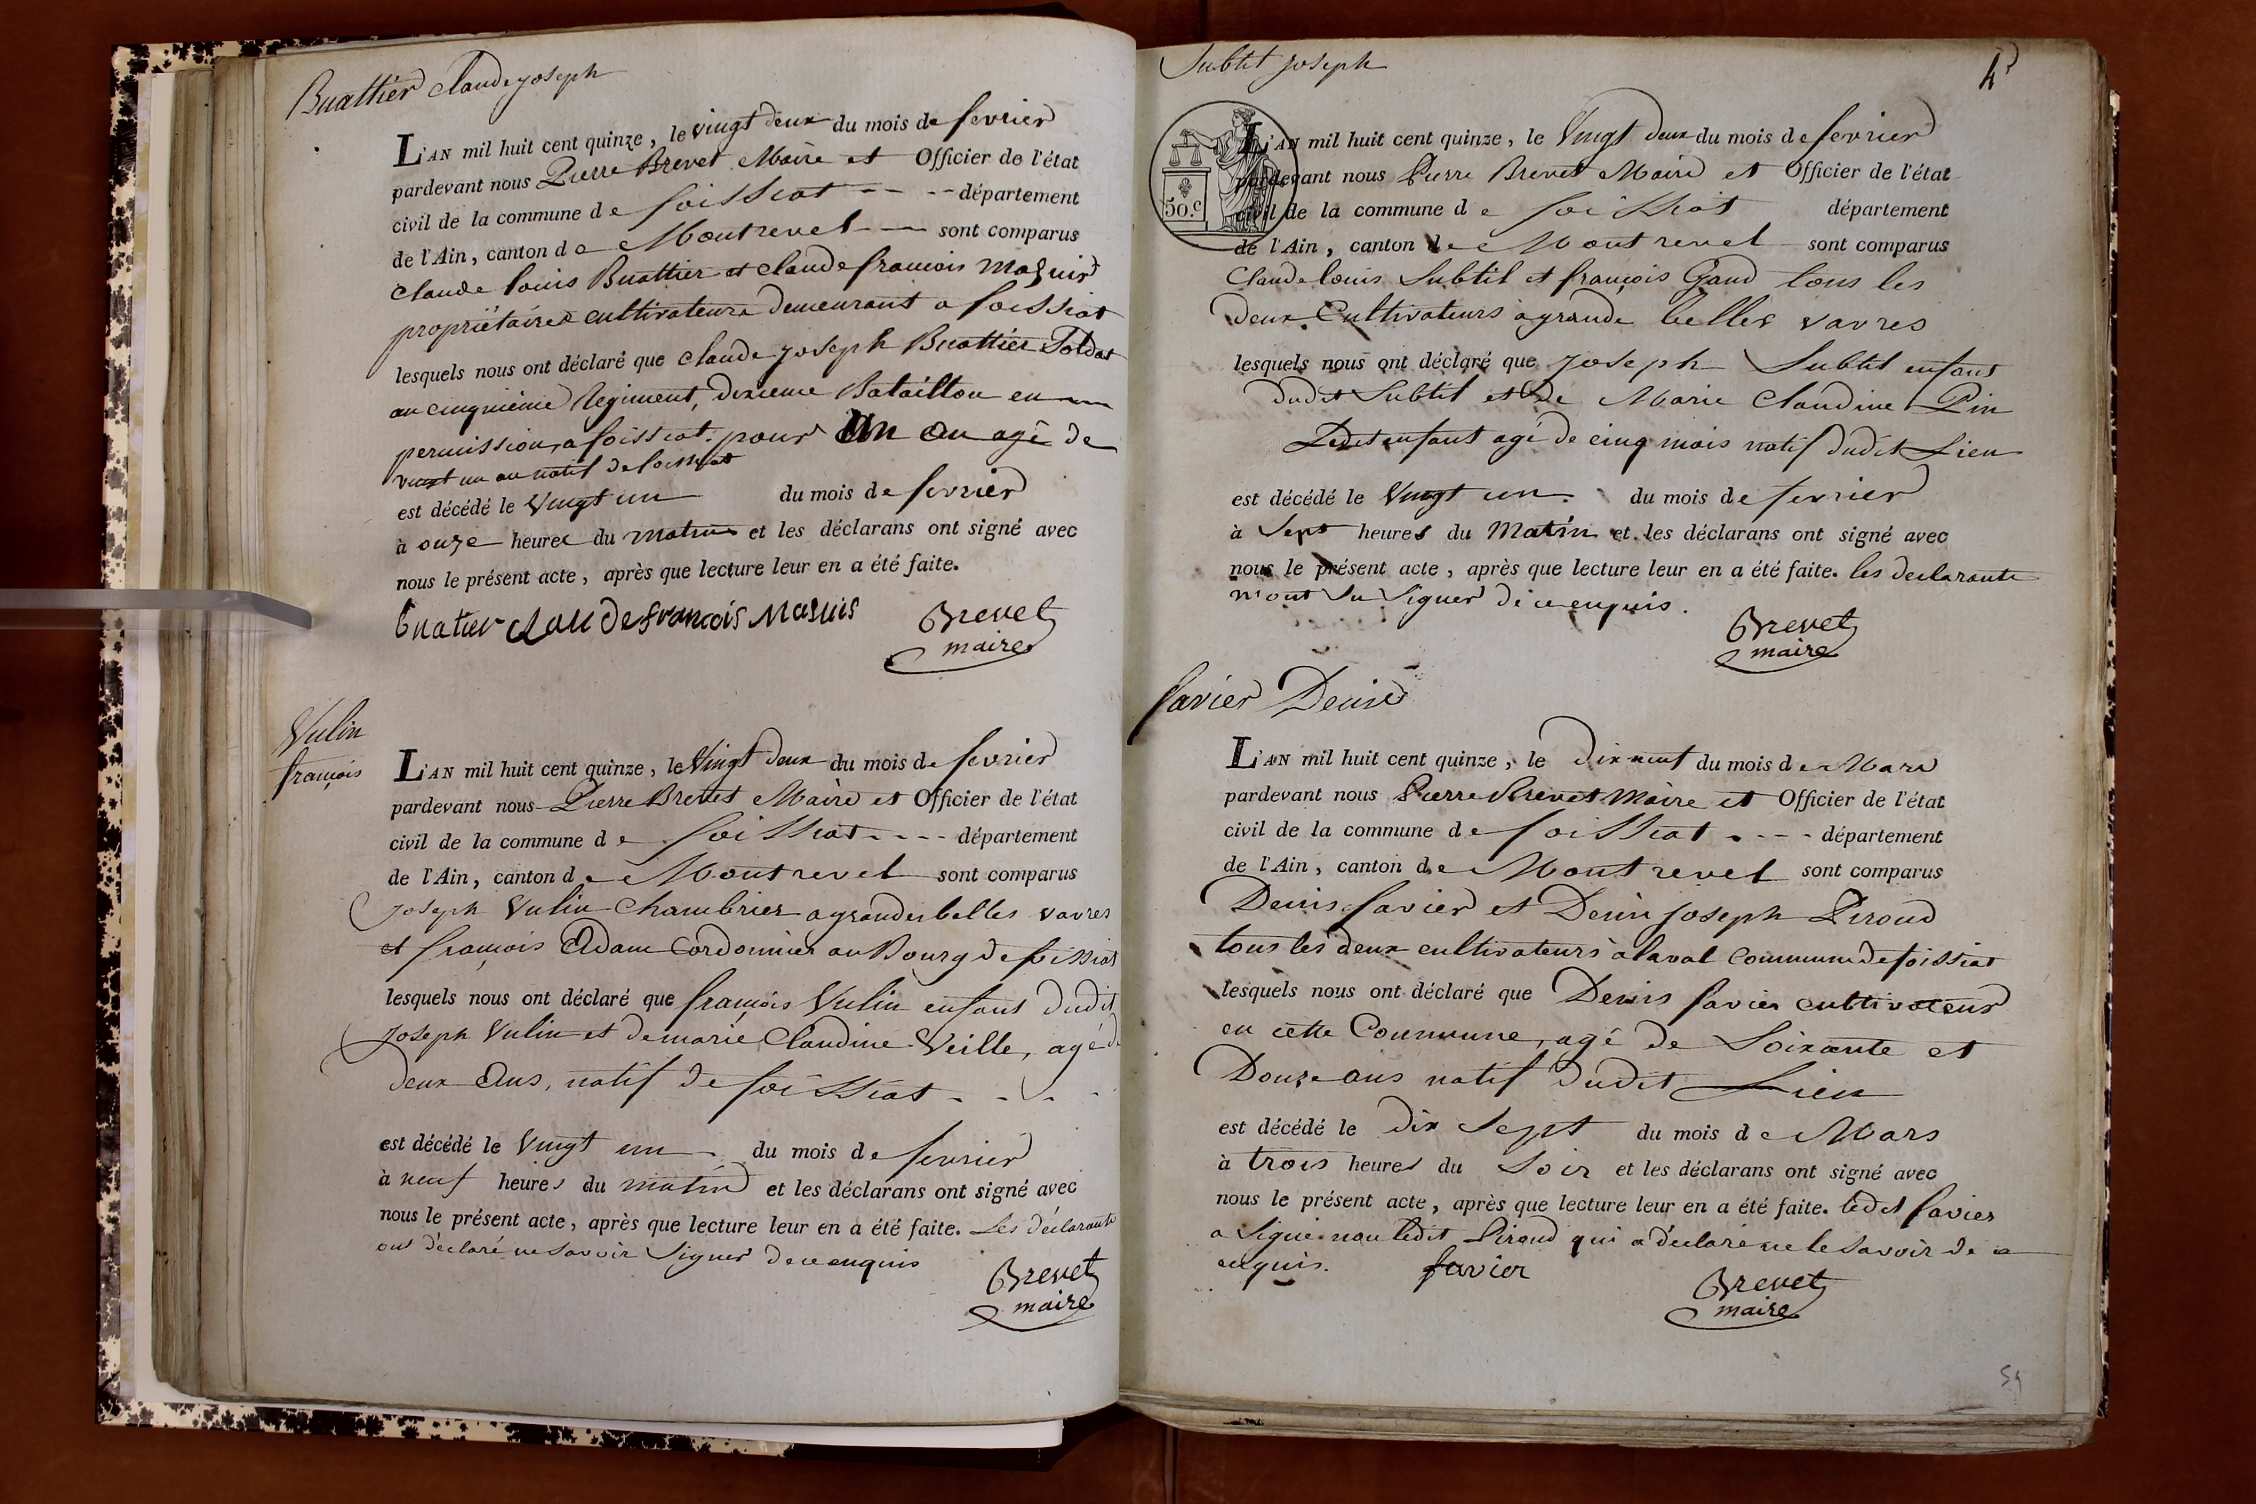 Buattier Claude joseph
L'AN mil huit cent quinze, le vingt deux du mois de fevrier
pardevant nous Pierre Brevet Maire et Officier de l'état
civil de la commune de foissiat département
de l'Ain, canton de Montrevel sont comparus
Claude louis Buattier et Claude francois Maguis
propriétaires cultivateurs demeurant a foissiat
lesquels nous ont déclaré que Claude joseph Buattier Soldat
au cinquieme Regiment, dixieme Bataillon en
permission, a foissiat pour un an agé de
vingt un an natif de foissiat
est décédé le Vingt un du mois de fevrier
à onze heures du matin et les déclarans ont signé avec
nous le présent acte, après que lecture leur en a été faite.
Buatier Claude francois Maguis Brevet
maire
Vulin
françois
L'AN mil huit cent quinze, le Vingt deux du mois de fevrier
pardevant nous Pierre Brevet Maire et Officier de l'état
civil de la commune de foissiat département
de l'Ain, canton de Montrevel sont comparus
joseph Vulin Chambrier a grandes belles vavres
et françois Adam Cordonnier au Bourg de foissiat
lesquels nous ont déclaré que françois Vulin enfant dudit
joseph Vulin et de marie Claudine Veille, agé de
deux Ans, natif de foissiat
est décédé le Vingt un du mois de fevrier
à neuf heures du matin et les déclarans ont signé avec
nous le présent acte, après que lecture leur en a été faite. Les déclarants
ont déclaré ne savoir signer de ce enquis
Brevet
maire
Subtil joseph
50.c
L'AN mil huit cent quinze, le Vingt deux du mois de fevrier
pardevant nous Pierre Brevet Maire et Officier de l'état
civil de la commune de foissiat département
de l'Ain, canton de Montrevel sont comparus
Claude louis Subtil et françois Gaud tous les
deux Cultivateurs a grande belles vavres
lesquels nous ont déclaré que joseph Subtil enfant
dudit Subtil et de Marie Claudine Pin
Ledit enfant agé de cinq mois natif dudit Lieu
est décédé le Vingt un du mois de fevrier
à Sept heures du Matin et les déclarans ont signé avec
nous le présent acte, après que lecture leur en a été faite. les declarants
n'ont Su Signer de ce enquis.
Brevet
maire
favier Denis
L'AN mil huit cent quinze, le Dix neuf du mois de Mars
pardevant nous Pierre Brevet Maire et Officier de l'état
civil de la commune de foissiat département
de l'Ain, canton de Montrevel sont comparus
Denis favier et Denis joseph Piroud
tous les deux cultivateurs à laval Commune de foissiat
lesquels nous ont déclaré que Denis favier cultivateur
en cette Commune, agé de Soixante et
Douze ans natif dudit Lieu
est décédé le dix Sept du mois de Mars
à trois heures du Soir et les déclarans ont signé avec
nous le présent acte, après que lecture leur en a été faite. ledit favier
a Signé non ledit Piroud qui a déclaré ne le Savoir de ce
enquis. favier Brevet
maire
59